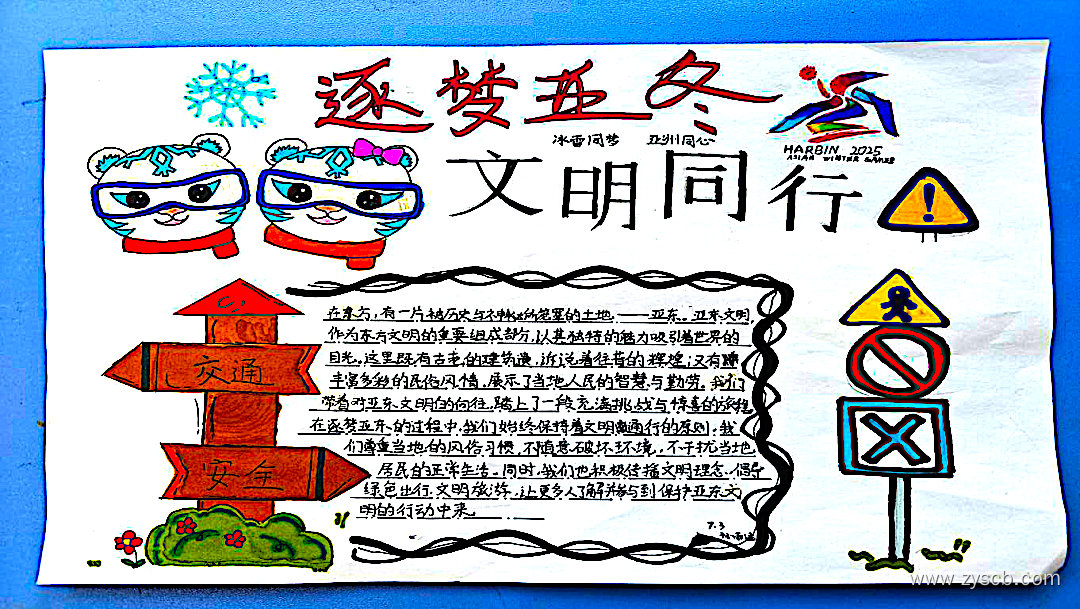 逐梦亚冬
冰雪同梦 亚州同心
HARBIN 2025
ASIAN WINTER GAMES
文明同行
在东方，有一片被历史与不神秘所笼罩的土地，——亚东。亚东文明，
作为东方文明的重要组成部分，以其独特的魅力吸引着世界的
目光。这里既有古老的建筑遗，诉说着往昔的辉煌；又有
丰富多彩的民俗风情，展示了当地人民的智慧与勤劳。我们
带着对亚东文明的向往，踏上了一段充满挑战与惊喜的旅程
在逐梦亚东的过程中，我们始终保持着文明通行的原则，我
们尊重当地的风俗习惯，不随意破坏环境，不干扰当地
居民的正常生活。同时，我们也积极传播文明理念，倡导
绿色出行，文明旅游，让更多人了解并参与到保护亚东文
明的行动中来。
交通
安全
7.3
www.zyscb.com